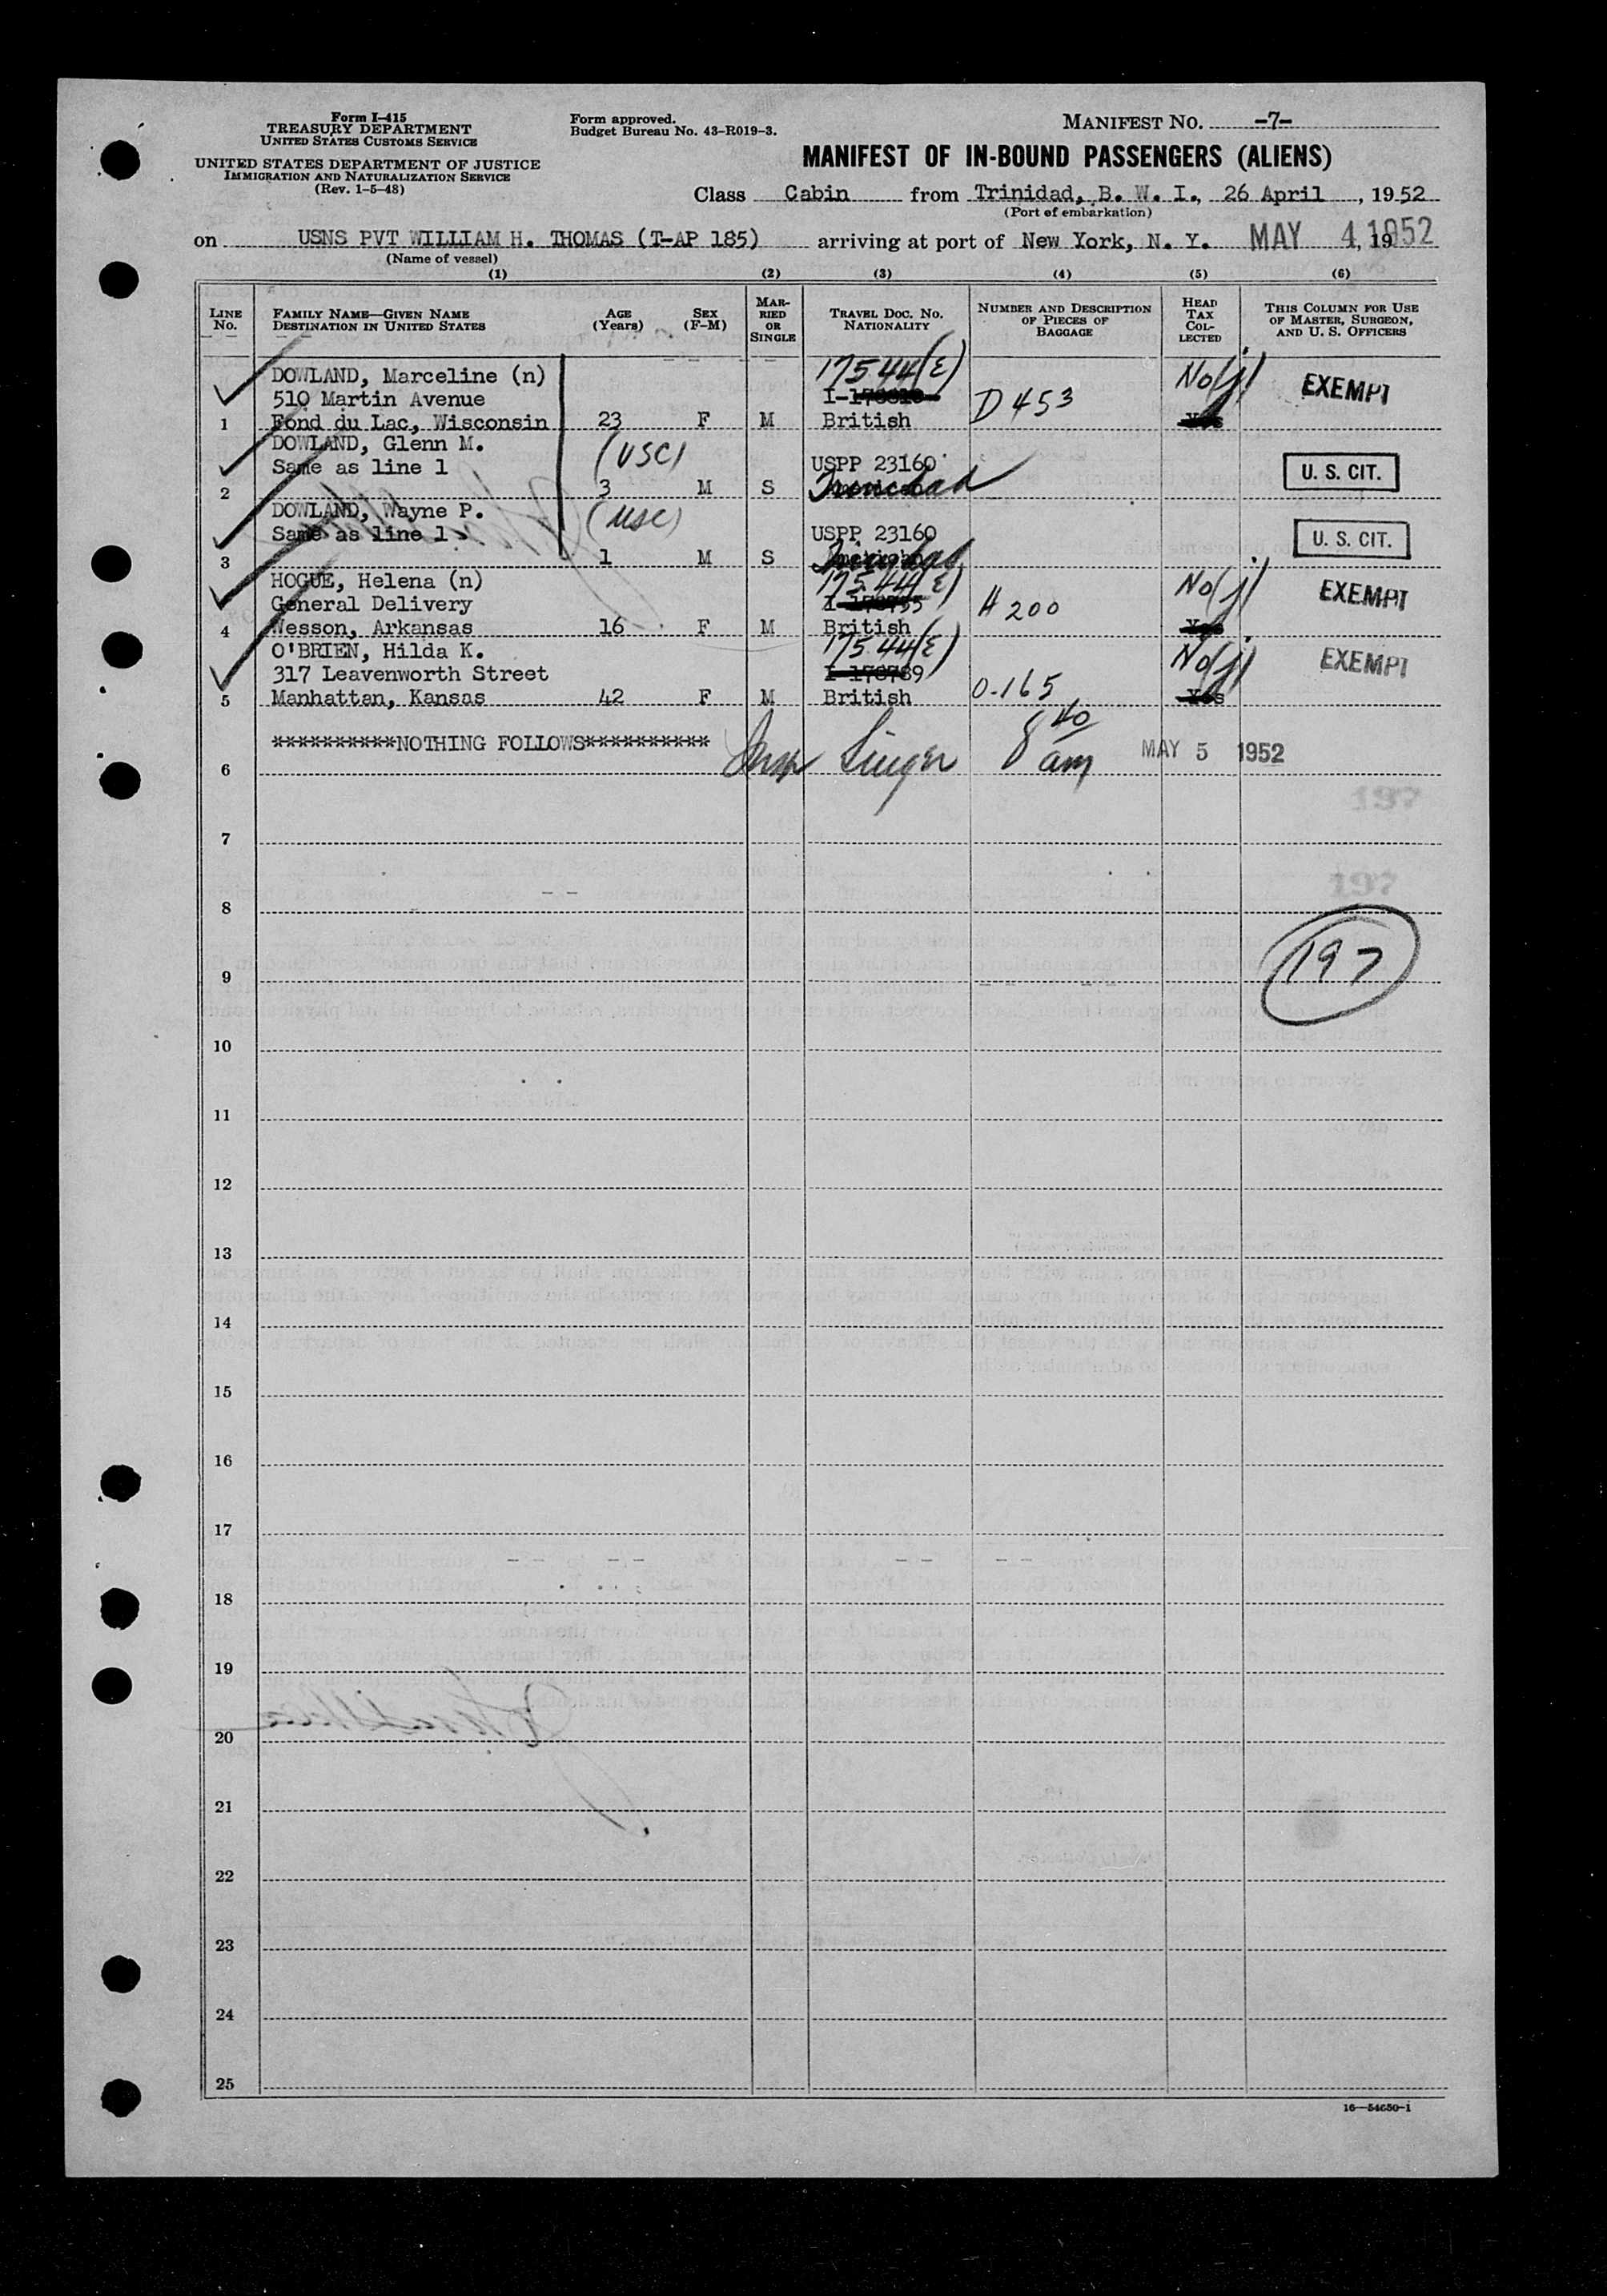 Form I-415
TREASURY DEPARTMENT
UNITED STATES CUSTOMS SERVICE
UNITED STATES DEPARTMENT OF JUSTICE
IMMIGRATION AND NATURALIZATION SERVICE
(Rev. 1-5-48)
Form approved.
Budget Bureau No. 43-R019-3.
MANIFEST NO. -7-
MANIFEST OF IN-BOUND PASSENGERS (ALIENS)
Class Cabin from Trinidad, B. W. I., 26 April, 1952
(Port of embarkation)
on USNS PVT WILLIAM H. THOMAS (T-AP 185) arriving at port of New York, N. Y. MAY 4, 1952
(Name of vessel)
(1) (2) (3) (4) (5) (6)
LINE No.
FAMILY NAME—GIVEN NAME
DESTINATION IN UNITED STATES
AGE (Years)
SEX (F-M)
MARRIED OR SINGLE
TRAVEL DOC. NO.
NATIONALITY
NUMBER AND DESCRIPTION OF PIECES OF BAGGAGE
HEAD TAX COLLECTED
THIS COLUMN FOR USE OF MASTER, SURGEON, AND U. S. OFFICERS
DOWLAND, Marceline (n) 17544(E) No(j) EXEMPT
510 Martin Avenue D 453
1 Fond du Lac, Wisconsin 23 F M British
DOWLAND, Glenn M. (USC)
Same as line 1 USPP 23160 U. S. CIT.
2 3 M S Trinidad
DOWLAND, Wayne P. (USC)
Same as line 1 USPP 23160 U. S. CIT.
3 1 M S Trinidad
HOGUE, Helena (n) 17544(E) No(j) EXEMPT
General Delivery H 200
4 Wesson, Arkansas 16 F M British
O'BRIEN, Hilda K. 17544(E) No(j) EXEMPT
317 Leavenworth Street I-178789
5 Manhattan, Kansas 42 F M British O-165 Yes
**********NOTHING FOLLOWS********** Insp Singer 8 40 am MAY 5 1952
6
197
7
197
8
197
9
10
11
12
13
14
15
16
17
18
19
20
21
22
23
24
25
16—54650-1